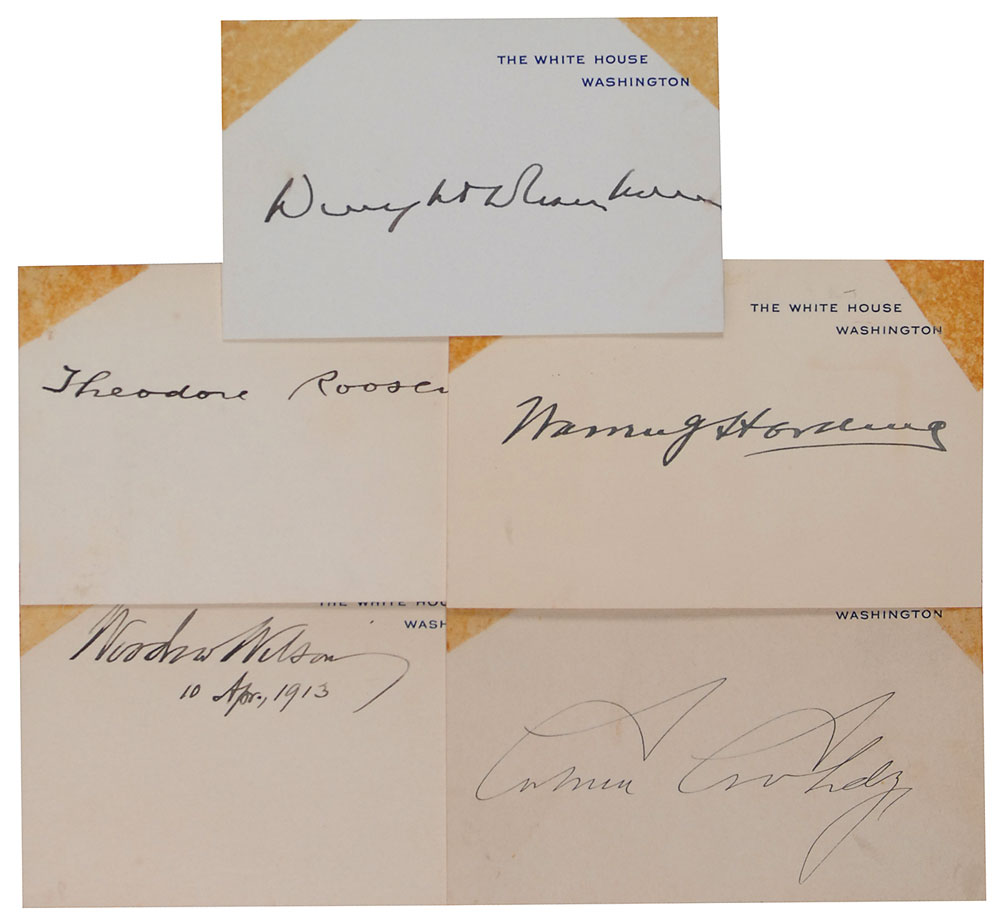 THE WHITE HOUSE
WASHINGTON
Dwight D Eisenhower
Theodore Roosev
THE WHITE HOUSE
WASHINGTON
Warren G Harding
THE WHITE HOU
WASH
Woodrow Wilson
10 Apr., 1913
WASHINGTON
Calvin Coolidge